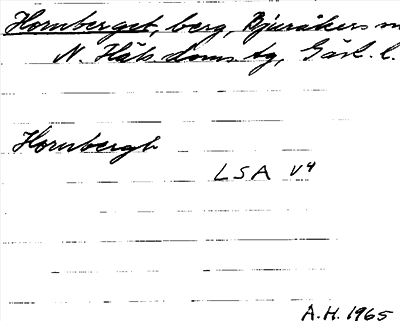 Hornberget, berg, Bjuråkers
N. Häls. doms. tg, Gävl. l.
Hornbergh
LSA V4
A.H. 1965